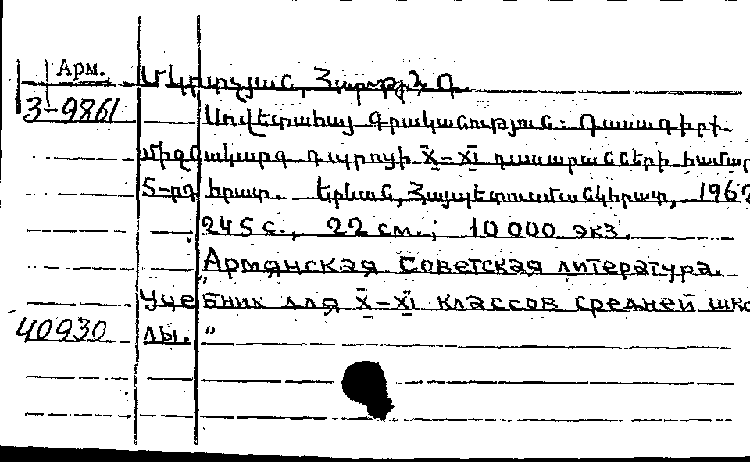 Арм. Մկրտչյան, Հարութ. Դ.
3-9861 Սովետահայ գրականություն: Դասագիրք
միջնակարգ դպրոցի X-XI դասարանների համար
5-րդ հրատ. Երևան, Հայպետուսմանկհրատ, 196
245 с., 22 см.; 10 000 экз.
"Армянская Советская литература.
Учебник для X-XI классов средней шко
40930 лы."